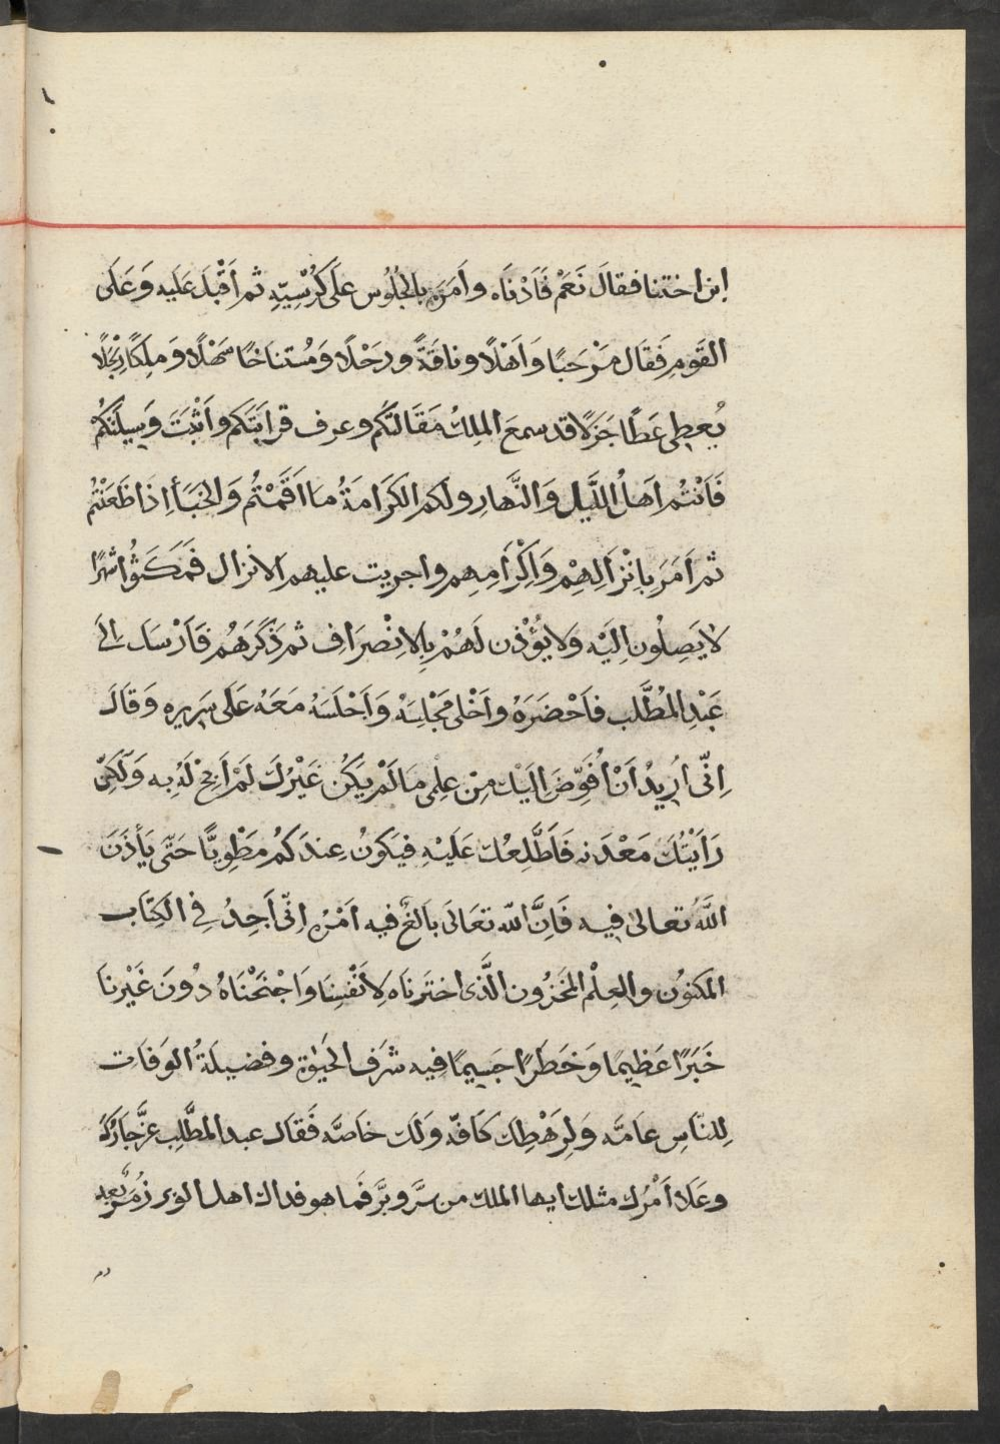 ابن اختنا فقالَ نَعَمْ فَاَدْنَاه وامَرَه بالجُلُوس علَى كُرْسِيّهِ ثم اَقْبَلَ عَلَيه وَعَلَى
القَومِ فَقَال مَرْحَبًا وَاَهْلًا وناقَةً ورَحْلًا وَمُسْتنَاخًا سَهْلًا وَمَلِكًا رِبَحْلًا
يُعطِى عَطًا جَزْلًا قد سمعَ الملِكُ مَقَالتَكُم وعرف قرابَتَكم واَثْبَتَ وَسِيلَتَكُم
فَاَنْتُم اَهلُ اللَّيل وَالنَّهارِ ولكم الكَرَامَةُ ما اَقَمْتُم وَالحَبَأ اِذَا ظَعَنْتُم
ثم اَمَرَ بِاِنْزَالِهِمْ وَاِكْرَامِهِم واجريت عليهم الانزال فَمَكَثُوا شَهْرًا
لا يَصِلُون اِلَيْه وَلا يُؤْذن لَهُمْ بِالاِنْصرَافِ ثم ذَكَرَهُم فَاَرْسَلَ اِلَى
عَبْدِ المُطَّلب فاَحْضَرَهُ واَخْلى مَجْلِسَهُ وَاَجْلَسَهُ مَعَهُ عَلَى سَرِيرِه وَقالَ
اِنّى اُرِيدُ اَنْ اُفَوِّضَ اِلَيْكَ مِنْ عِلْمِى مَا لَمْ يَكُن غَيْرُكَ لَمْ اَبُحْ لَهُ بِه وَلَكِنّى
رَاَيْتُكَ مَعْدَنه فَاَطْلَعْتُكَ عَلَيْهِ فَيَكُونُ عِندَكُم مَطْوِيًّا حَتّى يَأذَنَ
اللَّهُ تعالى فيه فَاِنَّ اللّه تعَالَى بَالغٌ فيه اَمْرَه اِنّى اَجِدُ فِى الكِتَابِ
المكنُون والعِلْم المَخزُون الَّذى اخترنَاه لِاَنْفُسِنَا وَاحْتَجَنْنَاهُ دُونَ غَيْرنَا
خَبَرًا عَظِيمًا وَخَطَرًا جَسِيمًا فِيه شرَف الحَيٰوة وفضيلَةُ الوَفَات
لِلنّاسِ عامّه وَلِرَهْطِكَ كَافّه وَلَكَ خاصّه فَقالَ عبد المطَّلِب عَزَّ جَارُكَ
وعَلا اَمْرُكَ مثلك ايها الملك من سَرَّ وبَرَّ فَما هو فداك اهل الوبر زُمَرً بعد